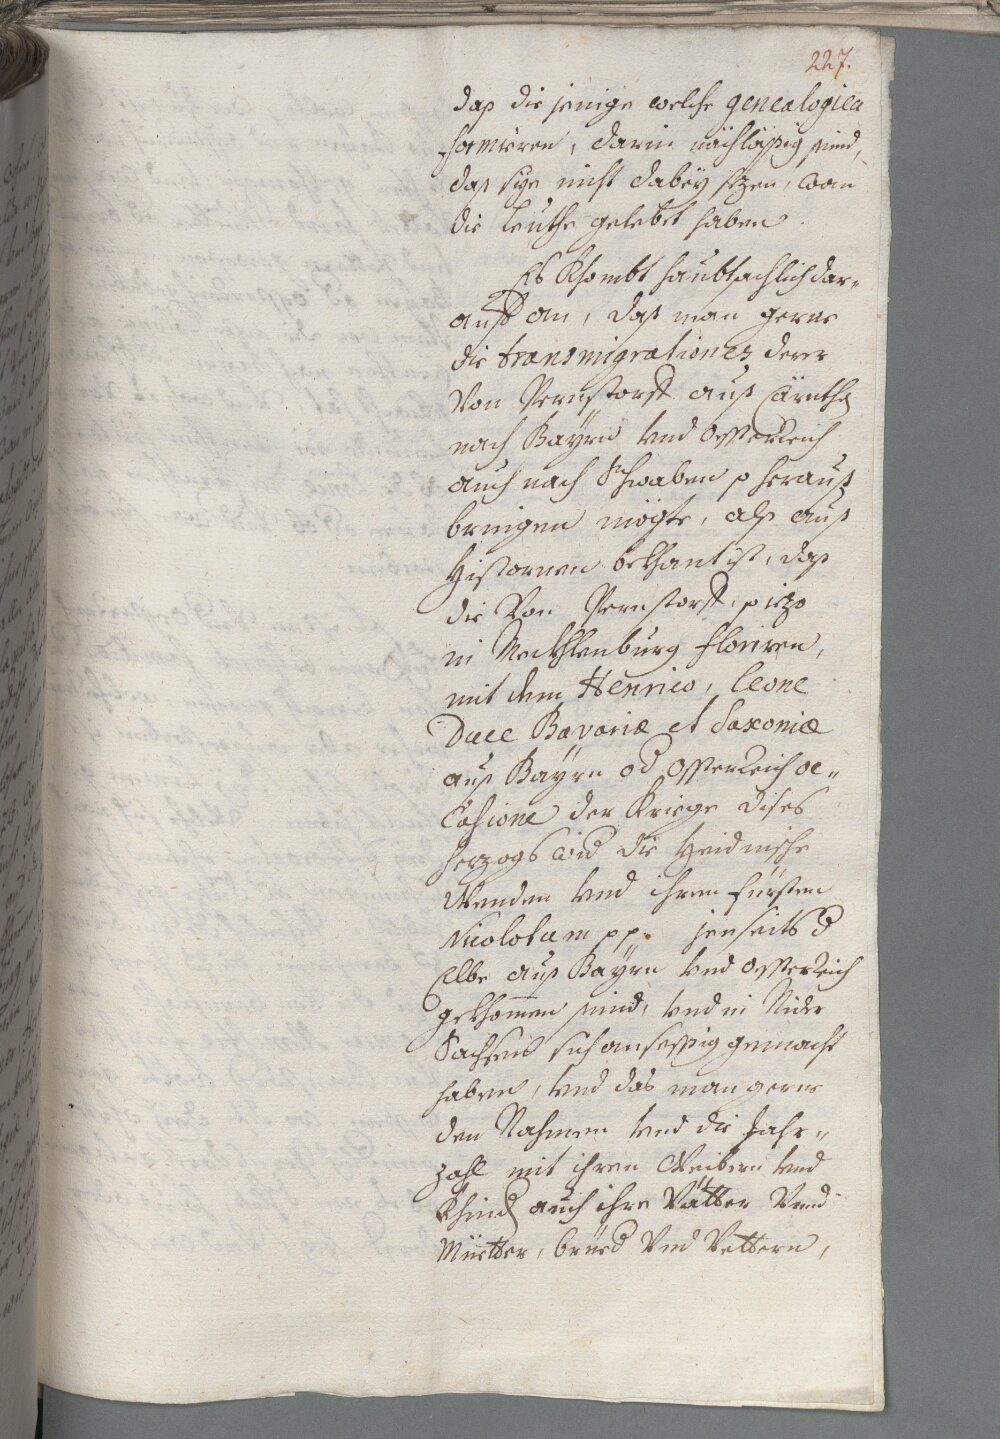 227.
daß die jenige welche genealogica
formieren, darin nachläßig sind,
daß sye nicht dabey sezen, wan
die Leuthe gelebet haben
Es khombt haubtsachlich dar-
auff an, daß man gerne
die transmigrationes derer
Von Pernstorff auß Cärnthen
nach Bayrn vnd Osterreich
auch nach Schwaben p herauß
bringen mögte, alß auß
Historien bekhant ist, daß
die Von Pernstorff, p iezo
in Meckhlenburg floriren,
mit dem Henrico, Leone
Duce Bavariæ et Saxoniæ
auß Bayrn od Osterreich oc-
Casione der Kriege dises
Herzogs wid die Heidnische
Wenden vnd ihren Fürsten
Nicolotum pp. jenseits d
Elbe auß Bayrn vnd Osterreich
gekhommen sind, vnd in Nider
Sachsen sich ansessig gemacht
haben, vnd das man gerne
den Nahmen vnd die Jahr-
zahl mit ihren Weibern vnd
Khind auch ihre Vätter Vnd
Müetter, brüed Vnd Vettern,